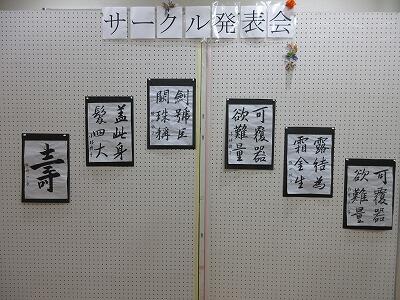 サークル発表会
寿
蓋此身
髪四大
劍號巨
闕珠稱
可覆器
欲難量
露結為
霜金生
可覆器
欲難量